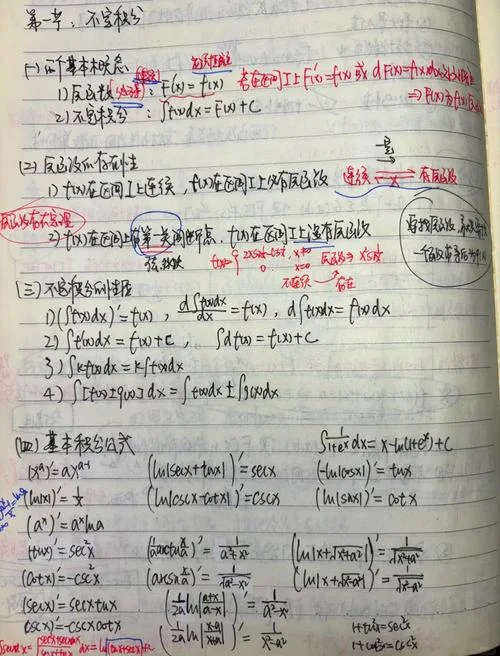 第一章：不定积分
(一) 两个基本概念
1) 原函数：F'(x) = f(x)
若在区间I上F'(x)=f(x) 或 dF(x)=f(x)dx
⇒ F(x)为f(x)
2) 不定积分：∫f(x)dx = F(x)+C
(2) 原函数的存在性
1) f(x)在区间I上连续，f(x)在区间I上必有原函数
连续 有原函数
原函数存在定理
2) f(x)在区间上有第一类间断点，f(x)在区间I上没有原函数
不连续 存在
(三) 不定积分的性质
1) (∫f(x)dx)' = f(x)， d∫f(x)dx/dx = f(x)， d∫f(x)dx = f(x)dx
2) ∫f'(x)dx = f(x)+C， ∫df(x) = f(x)+C
3) ∫kf(x)dx = k∫f(x)dx
4) ∫[f(x)±g(x)]dx = ∫f(x)dx ± ∫g(x)dx
(四) 基本积分公式 ∫1/(1+eˣ)dx = x-ln(1+eˣ)+C
(xᵃ)' = axᵃ⁻¹ (ln|secx+tanx|)' = secx (-ln|cosx|)' = tanx
(ln|x|)' = 1/x (ln|cscx-cotx|)' = cscx (ln|sinx|)' = cotx
(aˣ)' = aˣlna
(tanx)' = sec²x (1/a arctan x/a)' = 1/(a²+x²) (ln|x+√(x²+a²)|)' = 1/√(x²+a²)
(cotx)' = -csc²x (arcsin x/a)' = 1/√(a²-x²) (ln|x+√(x²-a²)|)' = 1/√(x²-a²)
(secx)' = secxtanx (1/2a ln|(a+x)/(a-x)|)' = 1/(a²-x²)
(cscx)' = -cscxcotx (1/2a ln|(x-a)/(x+a)|)' = 1/(x²-a²)
1+tan²x=sec²x
1+cot²x=csc²x